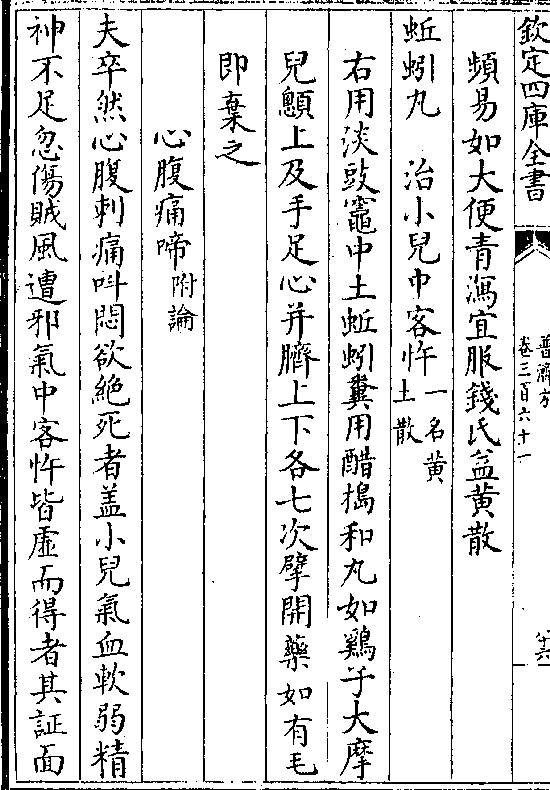 欽定四庫全書
普濟方
卷三百六十一
頻易如大便青瀉宜服錢氏益黄散
蚯蚓丸 治小兒中客忤一名黄土散
右用淡豉竈中土蚯蚓糞用醋搗和丸如鷄子大摩
兒顖上及手足心并臍上下各七次擘開藥如有毛
即棄之
心腹痛啼附論
夫卒然心腹刺痛呌悶欲絶死者盖小兒氣血軟弱精
神不足忽傷賊風遭邪氣中客忤皆虛而得者其証面